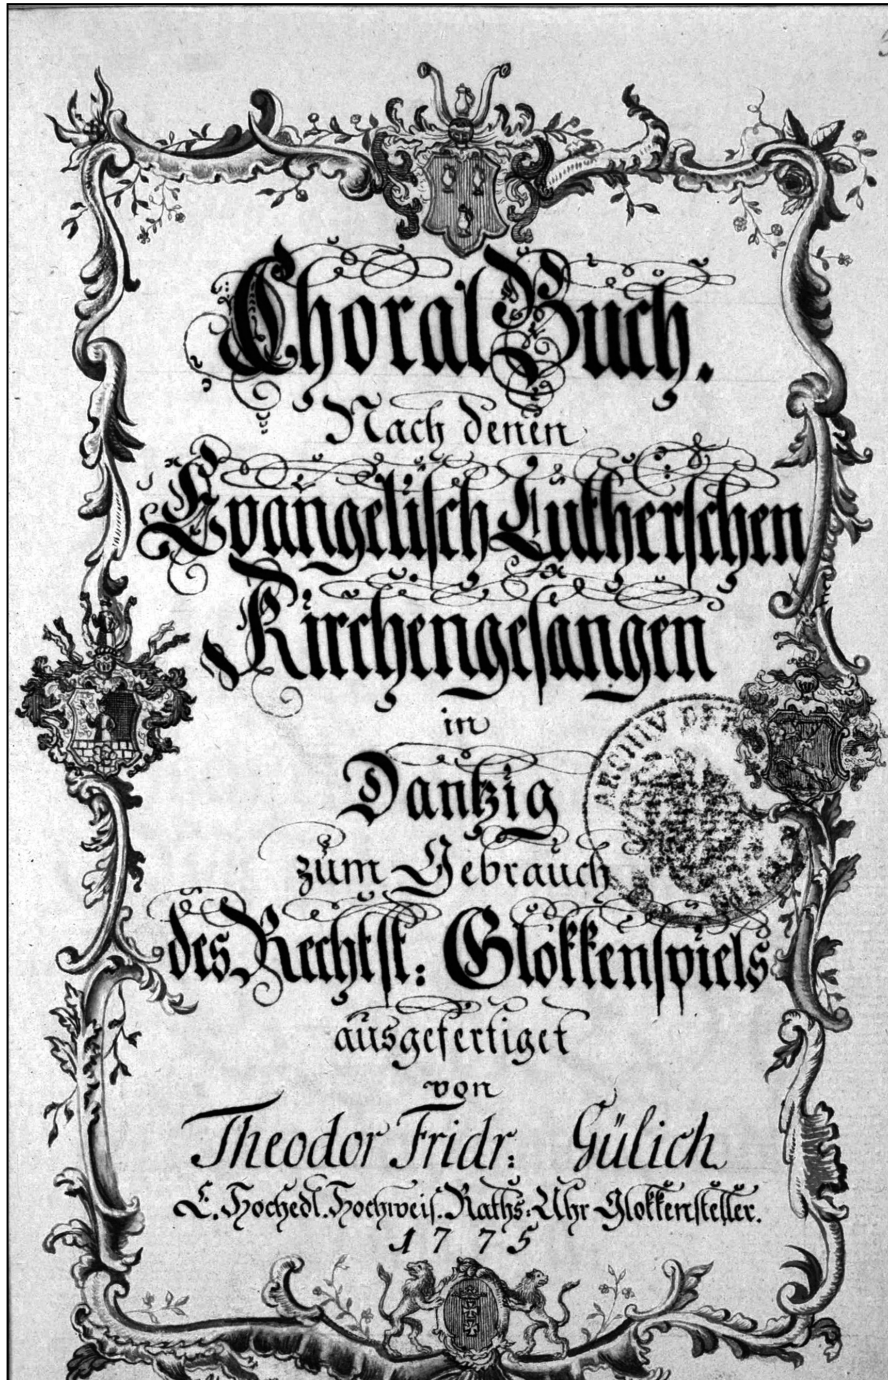 Choral Buch.
Nach denen
Evangelisch Lutherschen
Kirchengesangen
in
Dantzig
zum Gebrauch
des Rechtst: Glokkenspiels
ausgefertiget
von
Theodor Fridr: Gülich
E. Hochedl. Hochweis. Raths-Uhr Glokkensteller.
1775
ARCHIV DER